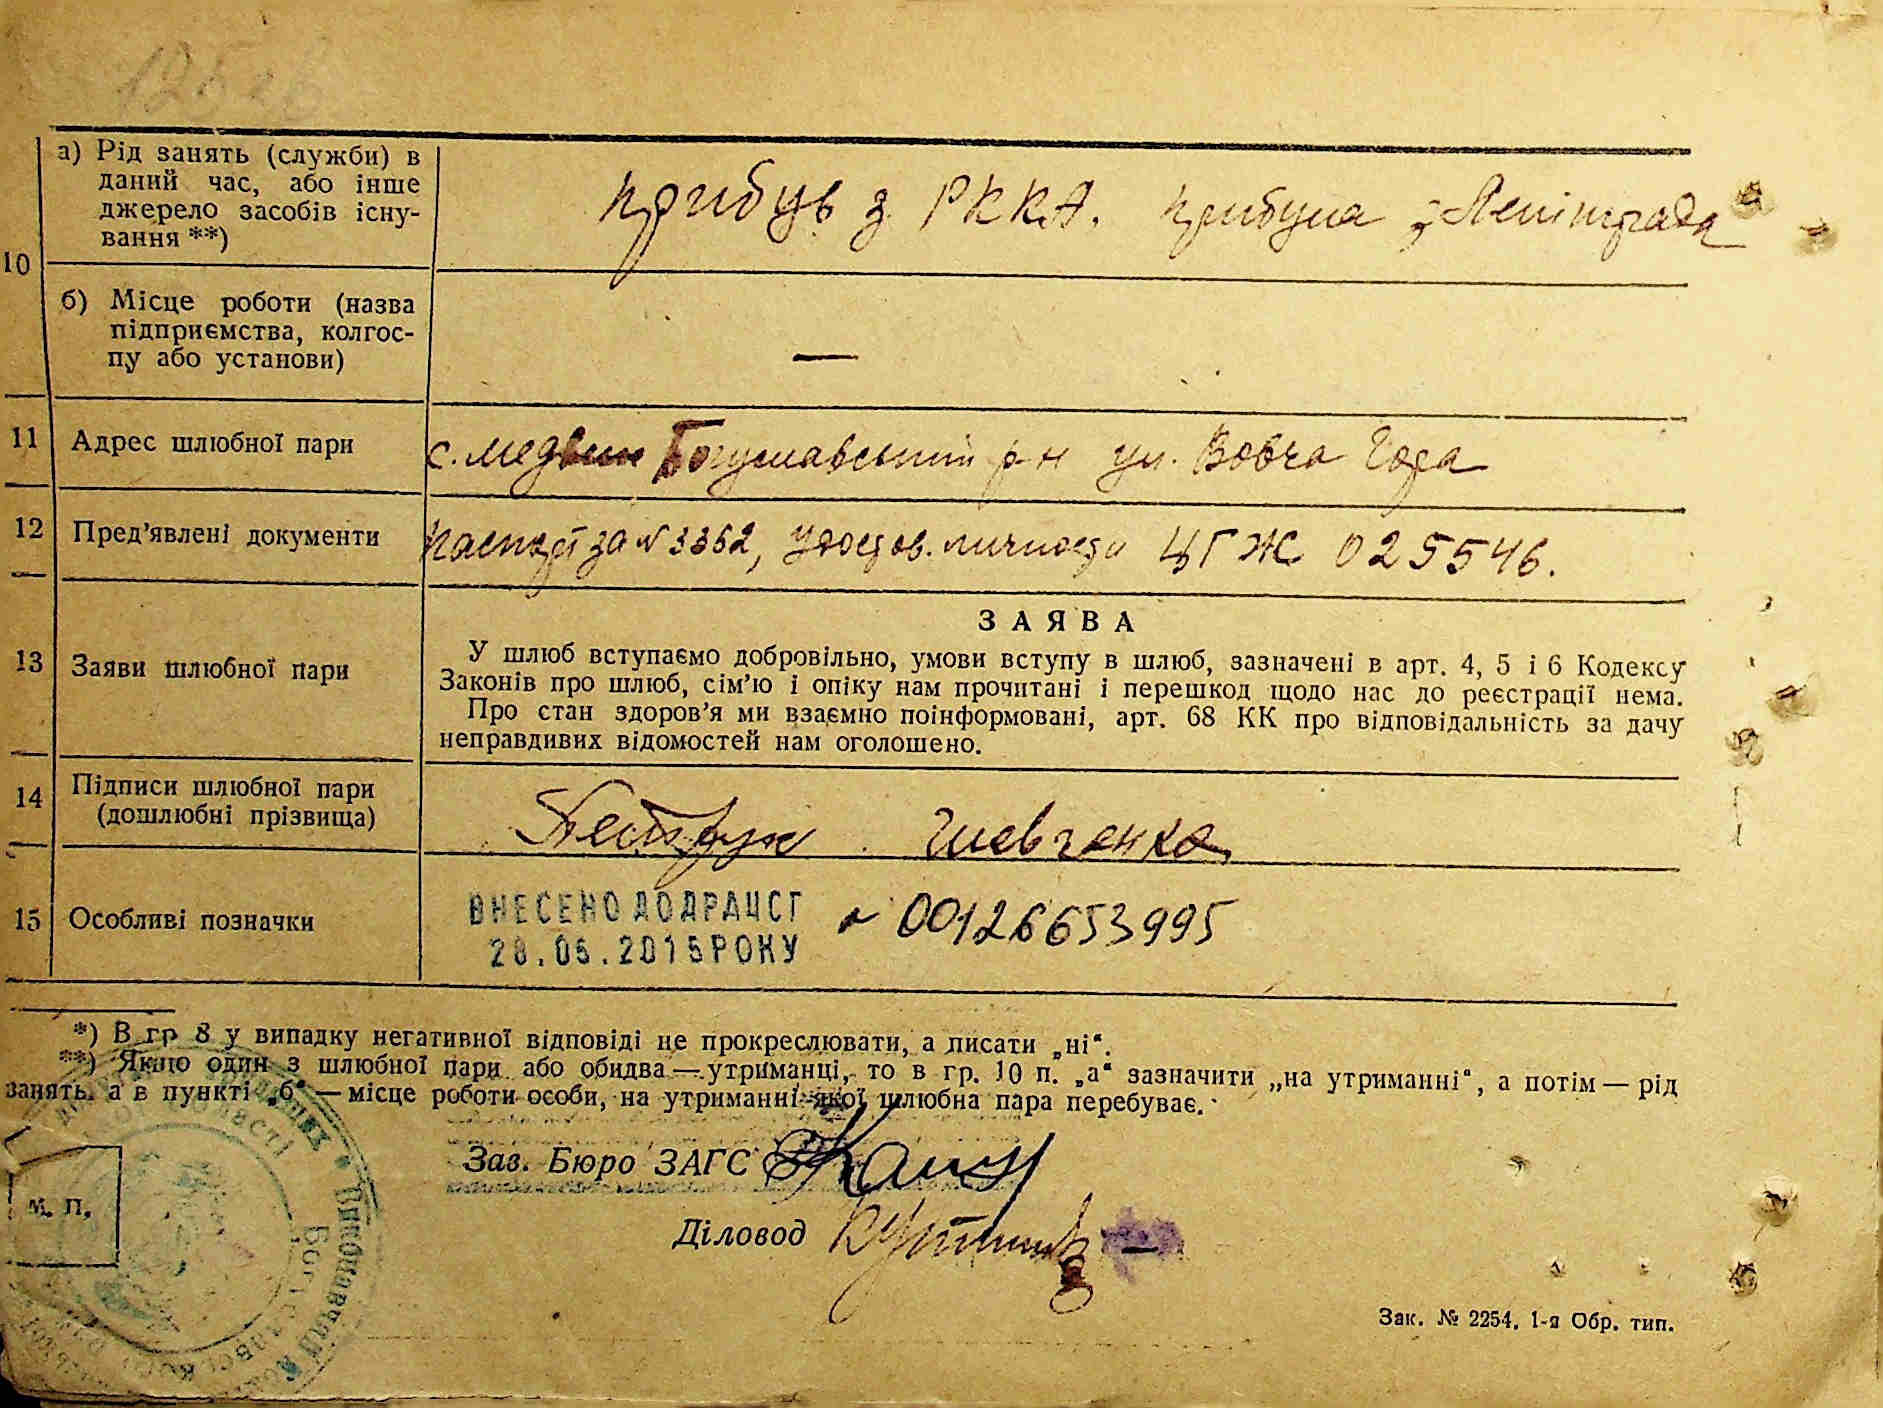 а) Рід занять (служби) в
даний час, або інше
джерело засобів існу-
вання **)
прибув з РККА. прибула з Ленінграда
10
б) Місце роботи (назва
підприємства, колгос-
пу або установи)
—
11 Адрес шлюбної пари
с. Медвин Богуславський р-н ул. Вовча Гора
12 Пред'явлені документи
паспорт за № 3362, удостов. личности ЦГЖ 025546.
13 Заяви шлюбної пари
ЗАЯВА
У шлюб вступаємо добровільно, умови вступу в шлюб, зазначені в арт. 4, 5 і 6 Кодексу
Законів про шлюб, сім'ю і опіку нам прочитані і перешкод щодо нас до реєстрації нема.
Про стан здоров'я ми взаємно поінформовані, арт. 68 КК про відповідальність за дачу
неправдивих відомостей нам оголошено.
14 Підписи шлюбної пари
(дошлюбні прізвища)
Шевченко
15 Особливі позначки
ВНЕСЕНО ДО ДРАЦСГ
28.05.2015 РОКУ
№ 00126653995
*) В гр 8 у випадку негативної відповіді не прокреслювати, а писати „ні“.
**) Якщо один з шлюбної пари або обидва — утриманці, то в гр. 10 п. „а“ зазначити „на утриманні“, а потім — рід
занять, а в пункті „б“ — місце роботи особи, на утриманні якої шлюбна пара перебуває.
Зав. Бюро ЗАГС
Діловод
М. П.
Зак. № 2254. 1-а Обр. тип.